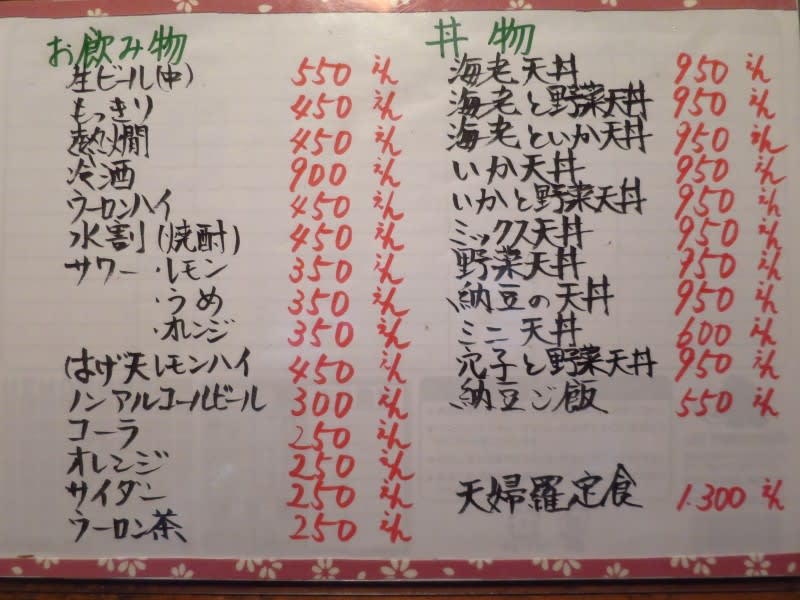 お飲み物
生ビール(中) 550 えん
もっきり 450 えん
熱燗 450 えん
冷酒 900 えん
ウーロンハイ 450 えん
水割(焼酎) 450 えん
サワー ・レモン 350 えん
・うめ 350 えん
・オレンジ 350 えん
はげ天レモンハイ 450 えん
ノンアルコールビール 300 えん
コーラ 250 えん
オレンジ 250 えん
サイダー 250 えん
ウーロン茶 250 えん
丼物
海老天丼 950 えん
海老と野菜天丼 950 えん
海老といか天丼 950 えん
いか天丼 950 えん
いかと野菜天丼 950 えん
ミックス天丼 950 えん
野菜天丼 950 えん
納豆の天丼 950 えん
ミニ天丼 600 えん
穴子と野菜天丼 950 えん
納豆ご飯 550 えん
天婦羅定食 1.300 えん